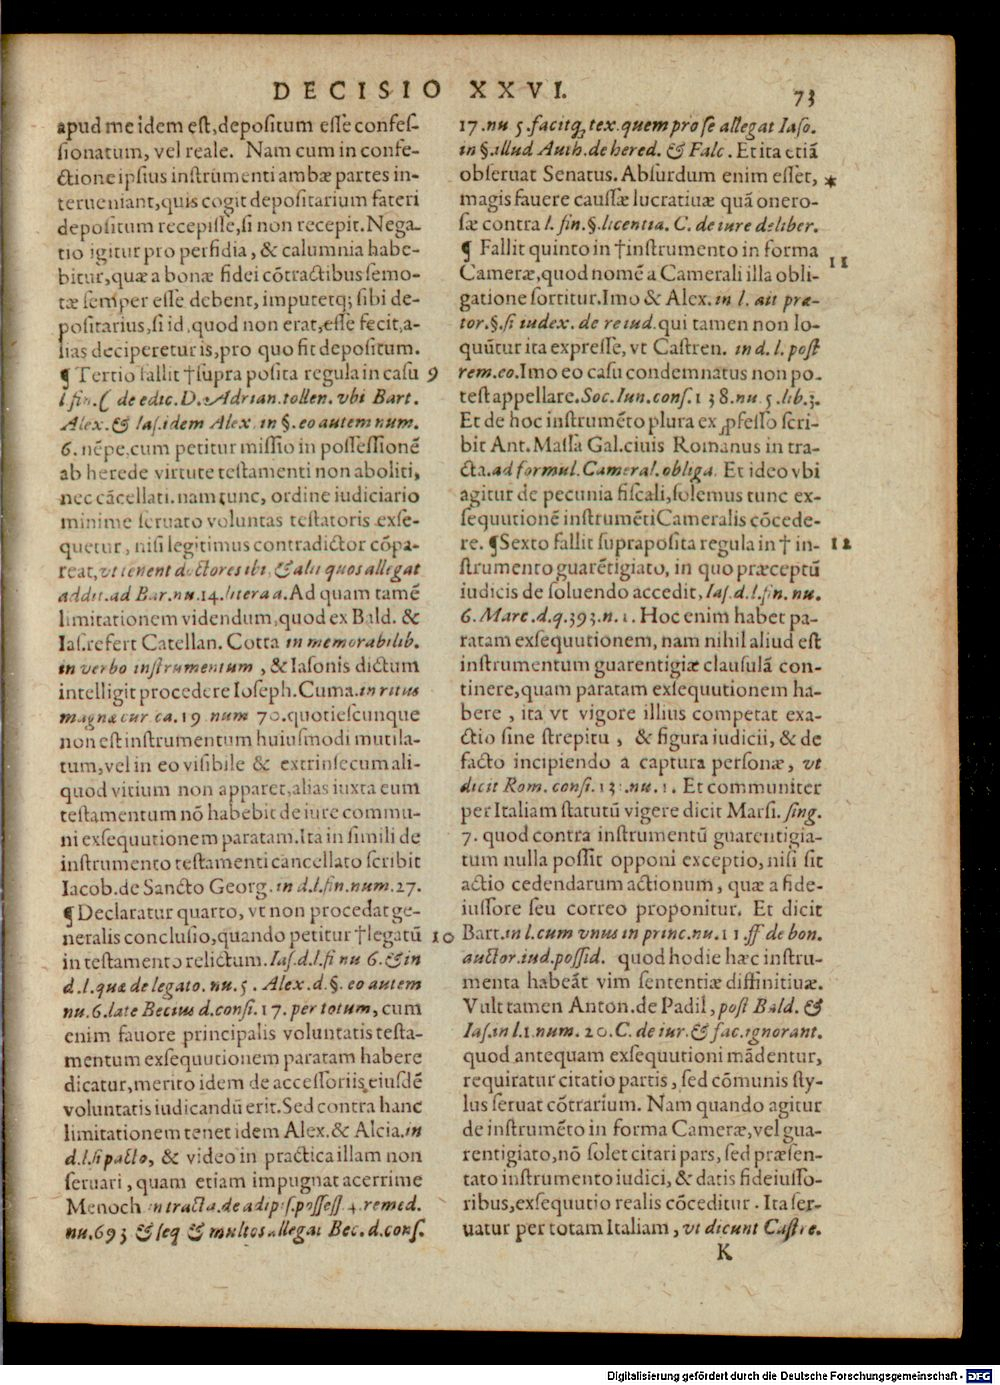 DECISIO XXVI.
73
apud me idem est, depositum esse confes-
sionatum, vel reale. Nam cum in confe-
ctione ipsius instrumenti ambæ partes in-
terueniant, quis cogit depositarium fateri
depositum recepisse, si non recepit. Nega-
tio igitur pro perfidia, & calumnia habe-
bitur, quæ a bonæ fidei cōtractibus semo-
tæ semper esse debent, imputetq; sibi de-
positarius, si id, quod non erat, esse fecit, a-
lias deciperetur is, pro quo fit depositum.
¶ Tertio fallit †supra posita regula in casu 9
l. fin. C de edic. D. Adrian. tollen. vbi Bart.
Alex. & Ias. idem Alex. in §. eo autem num.
6. nēpe, cum petitur missio in possessionē
ab herede virtute testamenti non aboliti,
nec cācellati. nam tunc, ordine iudiciario
minime seruato voluntas testatoris exse-
quetur, nisi legitimus contradictor cōpa-
reat, vt tenent doctores ibi, & alii quos allegat
addit. ad Bar. nu. 14. litera a. Ad quam tamē
limitationem videndum, quod ex Bald. &
Ias. refert Catellan. Cotta in memorabilib.
in verbo instrumentum, & Iasonis dictum
intelligit procedere Ioseph. Cuma. in ritus
magnæ cur ca. 19 num 70. quotiescunque
non est instrumentum huiusmodi mutila-
tum, vel in eo visibile & extrinsecum ali-
quod vitium non apparet, alias iuxta eum
testamentum nō habebit de iure commu-
ni exsequutionem paratam. Ita in simili de
instrumento testamenti cancellato scribit
Iacob. de Sancto Georg. in d. l. fin. num. 27.
¶ Declaratur quarto, vt non procedat ge-
neralis conclusio, quando petitur †legatū 10
in testamento relictum. Ias. d. l. fi nu 6. & in
d. l. quæ de legato. nu. 5. Alex. d. §. eo autem
nu. 6. late Becius d. consi. 17. per totum, cum
enim fauore principalis voluntatis testa-
mentum exsequutionem paratam habere
dicatur, merito idem de accessoriis eiusdē
voluntatis iudicandū erit. Sed contra hanc
limitationem tenet idem Alex. & Alcia. in
d. l. si pacto, & video in practica illam non
seruari, quam etiam impugnat acerrime
Menoch in tracta. de adipis. possess. 4. remed.
nu. 693 & seq & multos allegat Bec. d. cons.
17. nu 5. facitq; tex. quem pro se allegat Iaso.
in §. illud Auth. de hered. & Falc. Et ita etiā
obseruat Senatus. Absurdum enim esset, *
magis fauere caussæ lucratiuæ quā onero-
sæ contra l. fin. §. licentia. C. de iure deliber.
¶ Fallit quinto in †instrumento in forma 11
Cameræ, quod nomē a Camerali illa obli-
gatione sortitur. Imo & Alex. in l. ait præ-
tor. §. si iudex. de re iud. qui tamen non lo-
quūtur ita expresse, vt Castren. in d. l. post
rem. eo. Imo eo casu condemnatus non po-
test appellare. Soc. Iun. cons. 138. nu. 5. lib. 3.
Et de hoc instrumēto plura ex ꝓfesso scri-
bit Ant. Massa Gal. ciuis Romanus in tra-
cta. ad formul. Cameral. obliga. Et ideo vbi
agitur de pecunia fiscali, solemus tunc ex-
sequutionē instrumēti Cameralis cōcede-
re. ¶ Sexto fallit supraposita regula in † in- 12
strumento guarētigiato, in quo præceptū
iudicis de soluendo accedit, Ias. d. l. fin. nu.
6. Marc. d. q. 393. n. 1. Hoc enim habet pa-
ratam exsequutionem, nam nihil aliud est
instrumentum guarentigiæ clausulā con-
tinere, quam paratam exsequutionem ha-
bere, ita vt vigore illius competat exa-
ctio sine strepitu, & figura iudicii, & de
facto incipiendo a captura personæ, vt
dicit Rom. consi. nu. 1. Et communiter
per Italiam statutū vigere dicit Marsi. sing.
7. quod contra instrumentū guarentigia-
tum nulla possit opponi exceptio, nisi sit
actio cedendarum actionum, quæ a fide-
iussore seu correo proponitur. Et dicit
Bart. in l. cum vnus in princ. nu. 11 ff de bon.
auctor. iud. possid. quod hodie hæc instru-
menta habeāt vim sententiæ diffinitiuæ.
Vult tamen Anton. de Padil, post Bald. &
Ias. in l. 1. num. 20. C. de iur. & fac. ignorant.
quod antequam exsequutioni mādentur,
requiratur citatio partis, sed cōmunis sty-
lus seruat cōtrarium. Nam quando agitur
de instrumēto in forma Cameræ, vel gua-
rentigiato, nō solet citari pars, sed præsen-
tato instrumento iudici, & datis fideiusso-
ribus, exsequutio realis cōceditur. Ita ser-
uatur per totam Italiam, vt dicunt Castre.
K
Digitalisierung gefördert durch die Deutsche Forschungsgemeinschaft - DFG